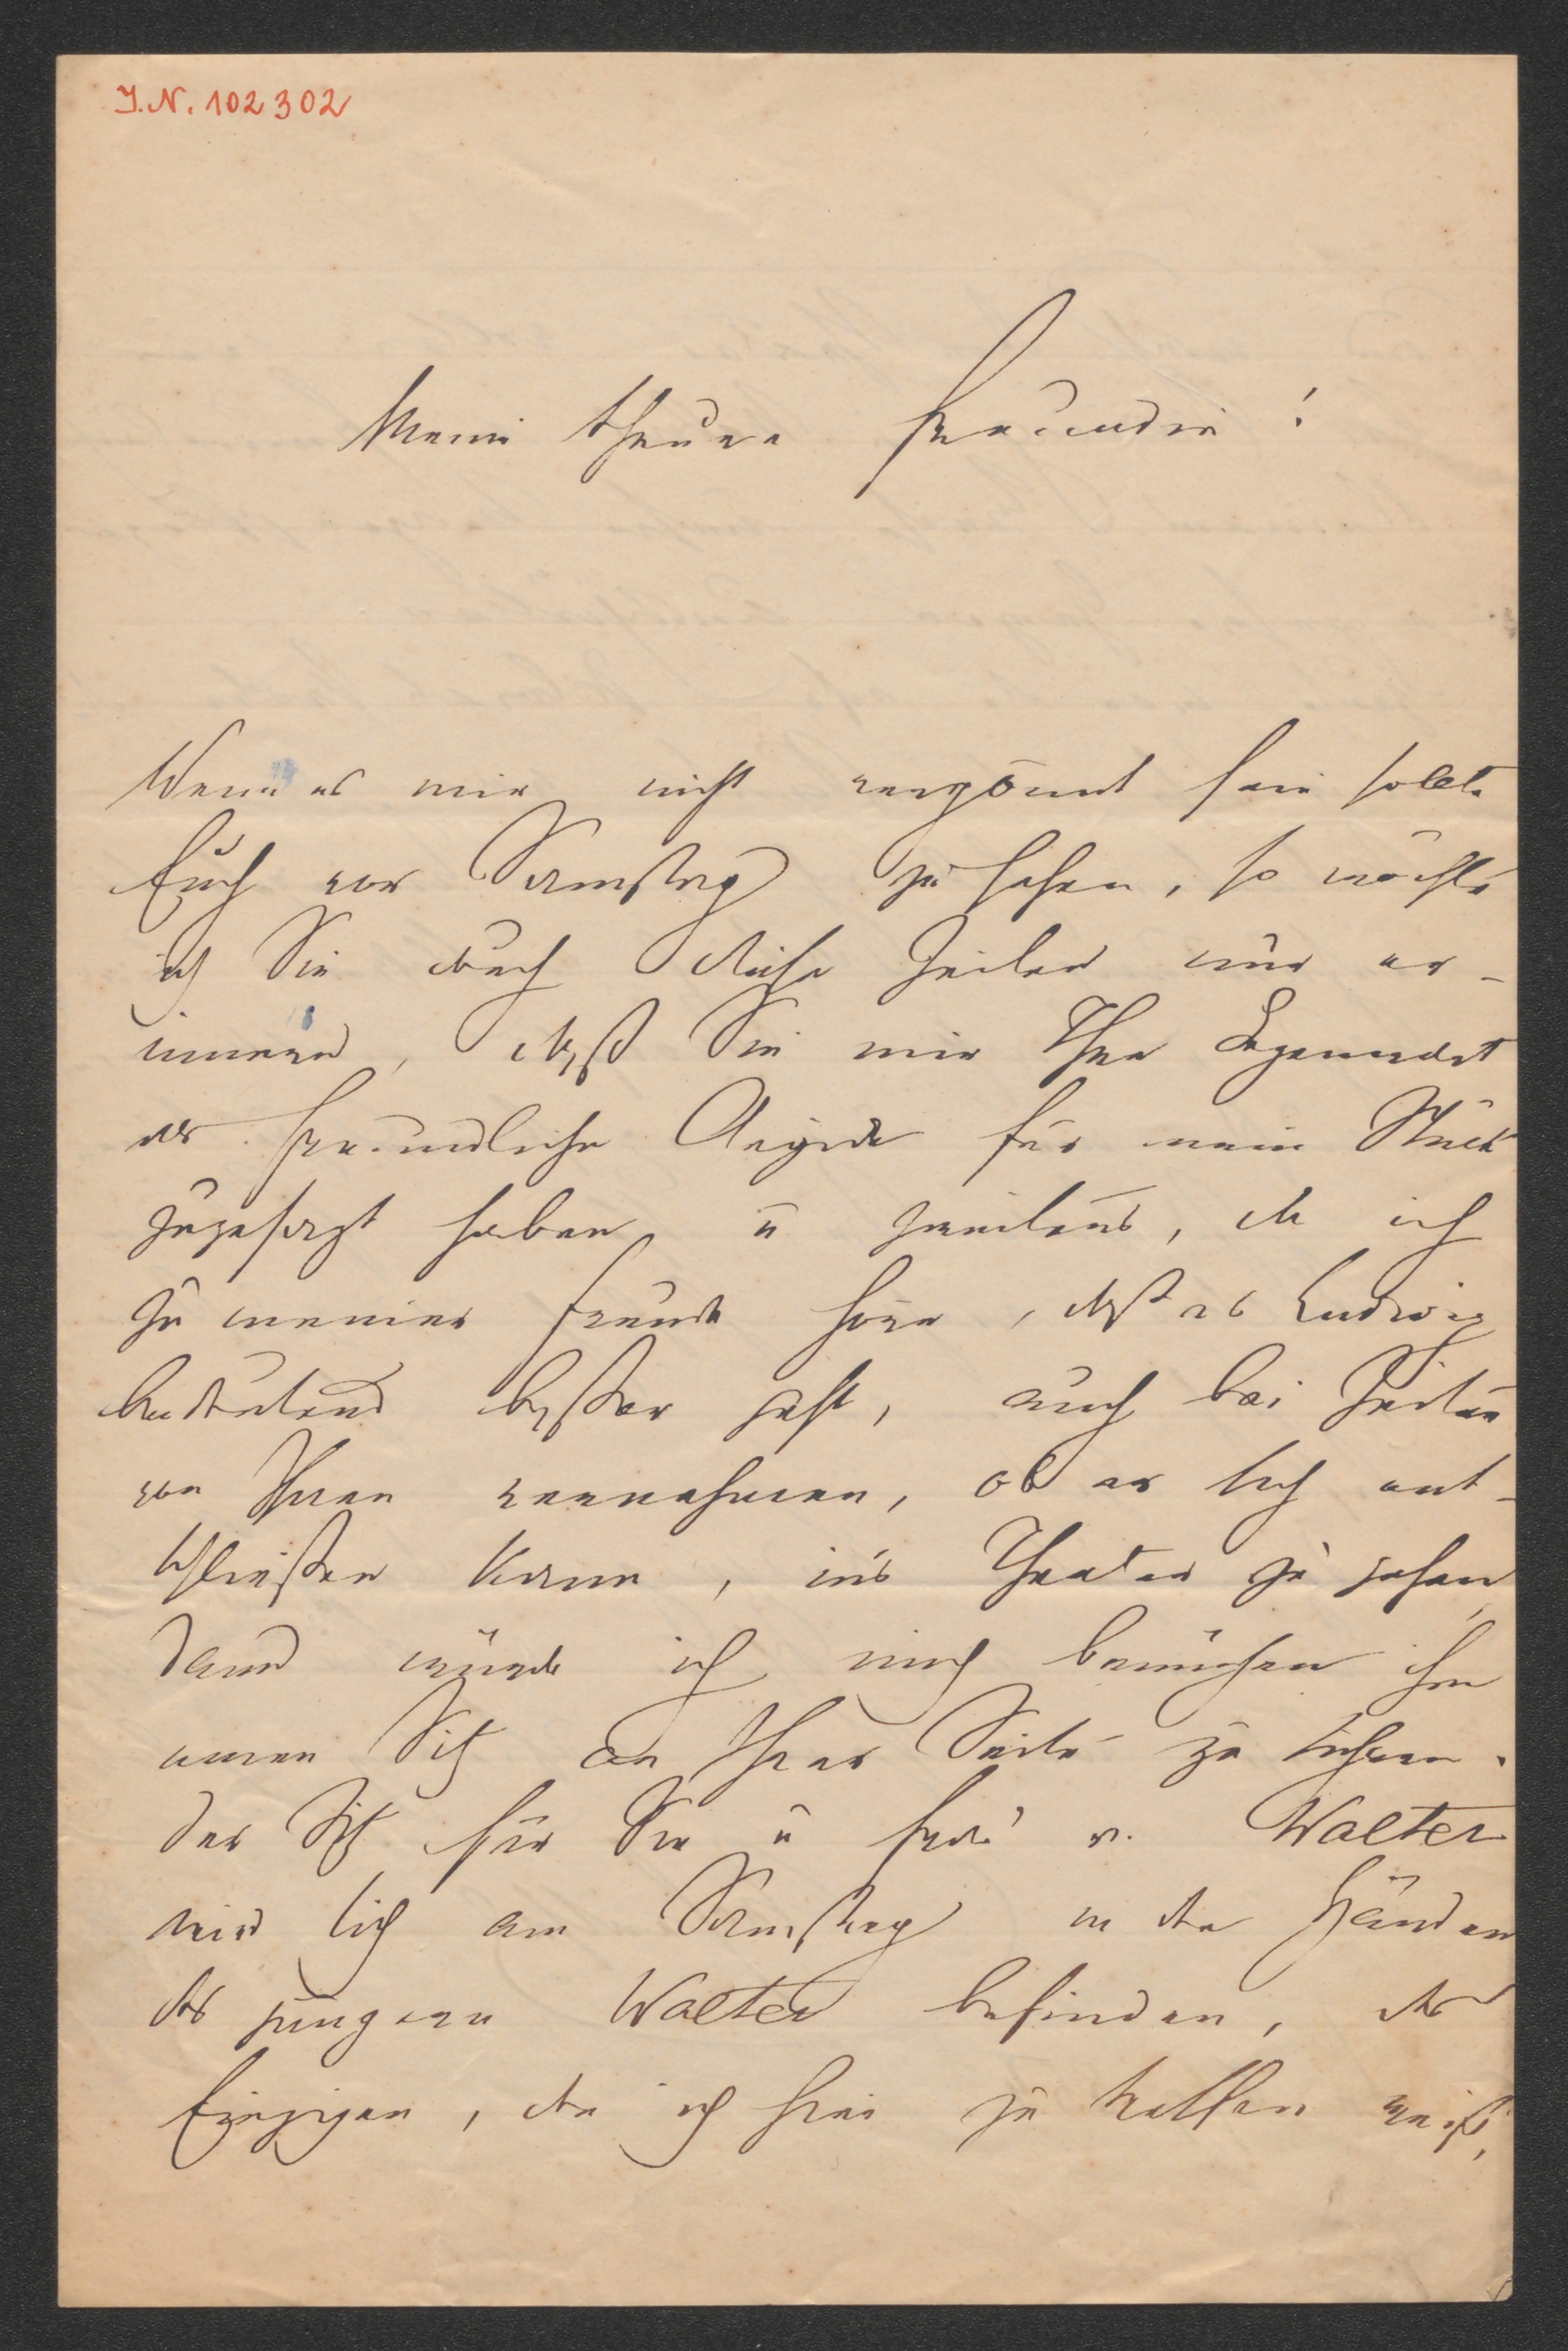 I.N. 102302
Meine theuere Freundin!
Wenn es mir nicht vergönnt sein sollte
Euch vor Samstag zu sehen, so möchte
ich Sie durch diese Zeilen nur er-
innern, daß Sie mir Ihre Gegenwart
als freundliche Aegide für mein Stück
zugesagt haben u zweitens, da ich
zu meiner Freude höre, daß es Ludwig
bedeutend besser geht, auch bei Zeiten
von Ihnen vernehmen, ob er sich ent-
schließen kann, in's Theater zu gehen,
dann würde ich mich bemühen ihm
einen Sitz an Ihrer Seite zu sichern.
Der Sitz für Sie u Frau v. Walter
wird sich am Samstag in den Händen
des jüngeren Walter befinden, des
Einzigen, den ich hier zu treffen weiß,